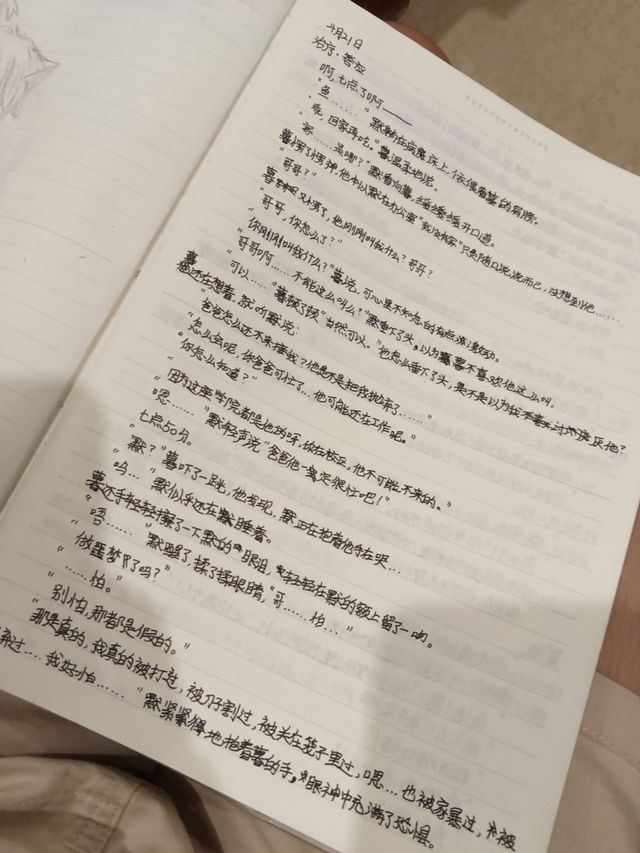 4月21日
治疗.答应
啊,七点了啊——
鱼……"默躺在病床上,依偎着暮的肩膀。
"乖,回家再吃。"暮温柔地说。
家……是哪?"默看向暮,缓缓开口道。
暮愣了愣神,他本以默在办公室"我没有家"只是随口说说而已,没想到他……
"哥哥?"
暮又愣了,他刚刚叫我什么?哥哥?
"哥哥,你怎么了?"
"你刚刚叫我什么?"暮说,可心里不知怎的有些波澜动。
"哥哥啊……不能这么叫么?"默垂下了头,以为暮不喜欢他这么叫。
可以……"暮顿了顿"当然可以、"他怎么垂下了头,是不是以为我讨厌他?
暮还在想着,就听默说:
"爸爸怎么还不来接我?他是不是把我抛弃了……"
"怎么会呢,你爸爸可忙了、他可能还在工作呢。"
"你怎么知道?"
"因为这座学院都是他的呀,你在校区,他不可能不来的。"
"嗯……"默轻声说"爸爸他一定很忙吧!"
七点50分。
"默?"暮吓了一跳,他发现,默正在抱着他手在哭…
"呜…"默似乎还在睡着。
暮还手轻轻擦了一下默的眼泪,轻轻在默的额上留了一吻。
"唔……"默醒了,揉了揉眼睛,"哥……怕…"
"做噩梦了吗?"
"……怕。"
"别怕,那都是假的。"
"那是真的,我真的被打过,被刀子割过,被关在笼子里过,嗯…也被家暴过,被
过……我好怕……"默紧紧地抱着暮的手,眼神中充满了恐惧。